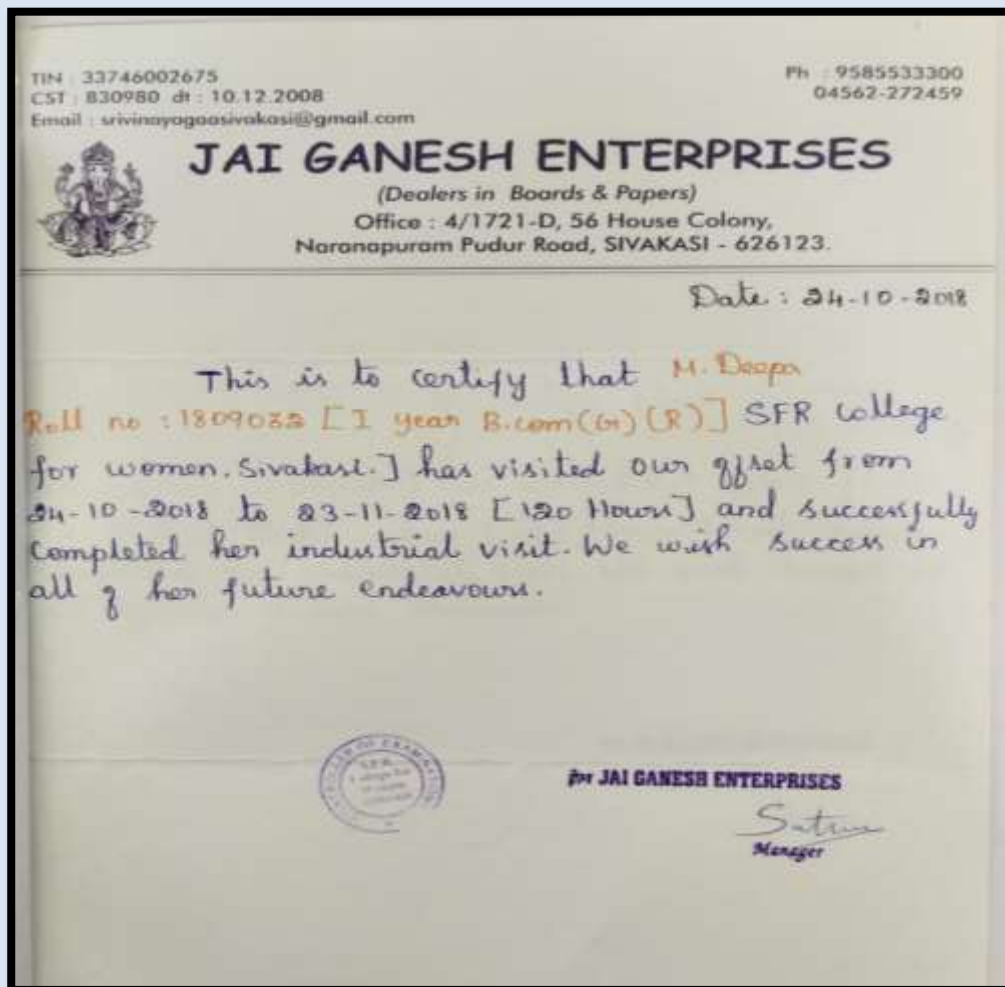 TIN : 33746002675
Ph : 9585533300
CST : 830980 dt : 10.12.2008
04562-272459
Email : srivinayagaasivakasi@gmail.com
JAI GANESH ENTERPRISES
(Dealers in Boards & Papers)
Office : 4/1721-D, 56 House Colony,
Naranapuram Pudur Road, SIVAKASI - 626123.
Date : 24-10-2018
This is to certify that M. Deepa
Roll no : 1809033 [I year B.com(G)(R)] SFR College
for women, Sivakasi.] has visited our offset from
24-10-2018 to 23-11-2018 [120 Hours] and successfully
completed her industrial visit. We wish success in
all of her future endeavours.
OF EXAMINATION
for JAI GANESH ENTERPRISES
Manager